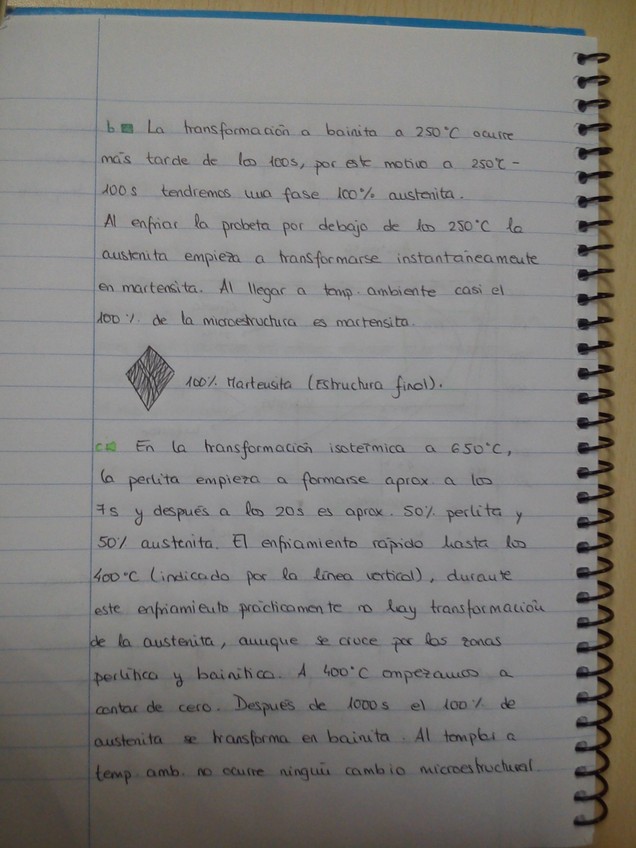 b La transformación a bainita a 250°C ocurre
más tarde de los 100s, por este motivo a 250°C -
100s tendremos una fase 100% austenita.
Al enfriar la probeta por debajo de los 250°C la
austenita empieza a transformarse instantáneamente
en martensita. Al llegar a temp. ambiente casi el
100% de la microestructura es martensita.
100% Martensita (Estructura final).
c En la transformación isotérmica a 650°C,
la perlita empieza a formarse aprox. a los
7s y después a los 20s es aprox. 50% perlita y
50% austenita. El enfriamiento rápido hasta los
400°C (indicado por la línea vertical), durante
este enfriamiento prácticamente no hay transformación
de la austenita, aunque se cruce por las zonas
perlítica y bainítica. A 400°C empezamos a
contar de cero. Después de 1000s el 100% de
austenita se transforma en bainita. Al templar a
temp. amb. no ocurre ningún cambio microestructural.